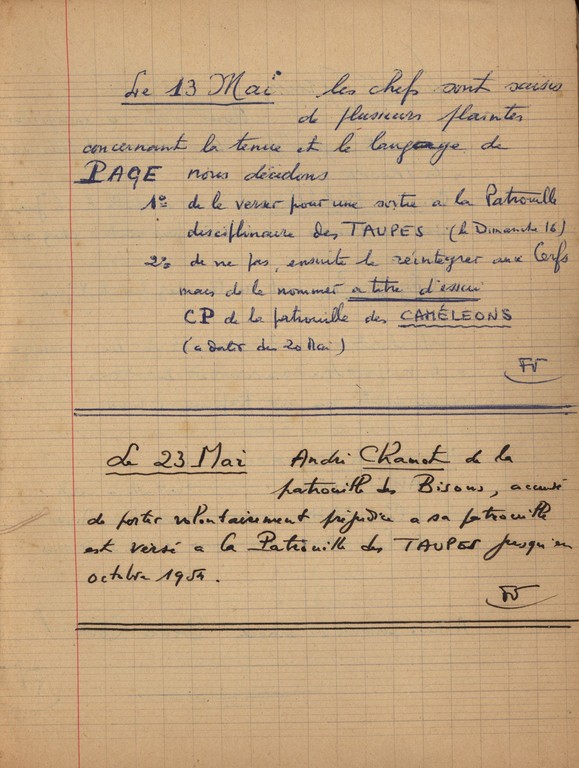 Le 13 Mai les chefs sont saisis
de plusieurs plaintes
concernant la tenue et le language de
PAGE nous décidons
1º= de le verser pour une sortie a la Patrouille
disciplinaire des TAUPES (le Dimanche 16)
2º= de ne pas, ensuite le réintegrer aux Cerfs
mais de le nommer a titre d'essai
CP de la patrouille des CAMÉLEONS
(a dater du 20 Mai)
Le 23 Mai André Chamot de la
patrouille des Bisons, accusé
de porter volontairement préjudice a sa patrouille
est versé a la Patrouille des TAUPES jusqu'en
octobre 1954.